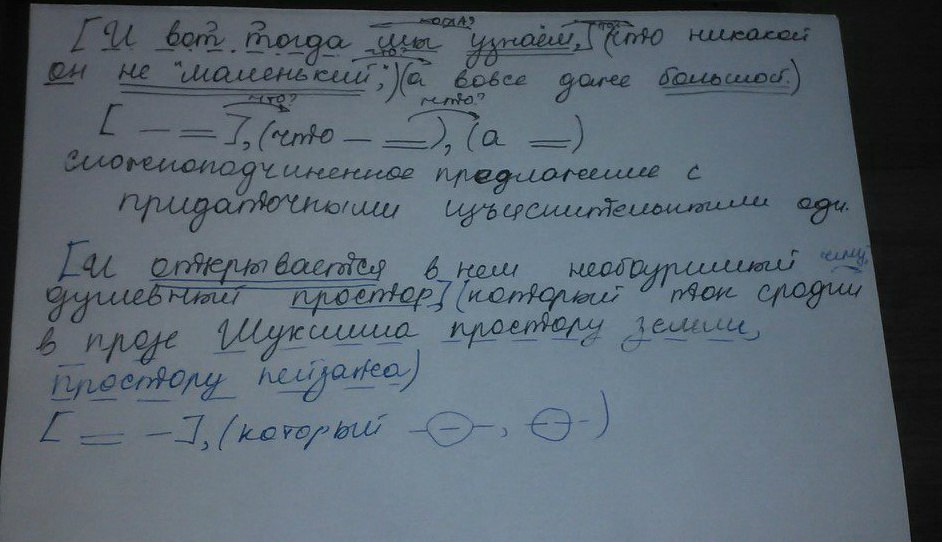 когда? что?
[И вот тогда мы узнаём,] (что никакой
что?
он не "маленький",)(а вовсе даже большой.)
что? что?
[ — = ], (что — = ), (а = )
сложноподчиненное предложение с
придаточными изъяснительными одн.
[И открывается в нем необозримый чему?
душевный простор,] (который так сродни
в прозе Шукшина простору земли,
простору пейзажа)
[ = — ], (который —, — )